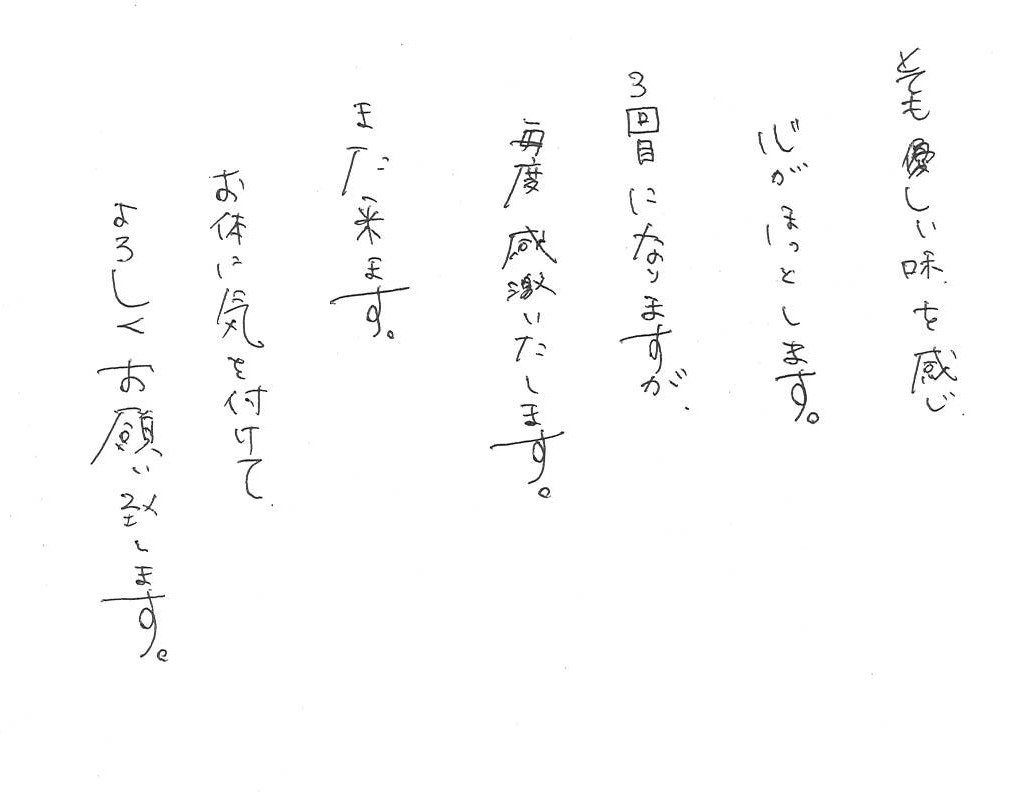 とても優しい味を感じ
心がほっとします。
3回目になりますが、
毎度感激いたします。
また来ます。
お体に気を付けて
よろしくお願い致します。